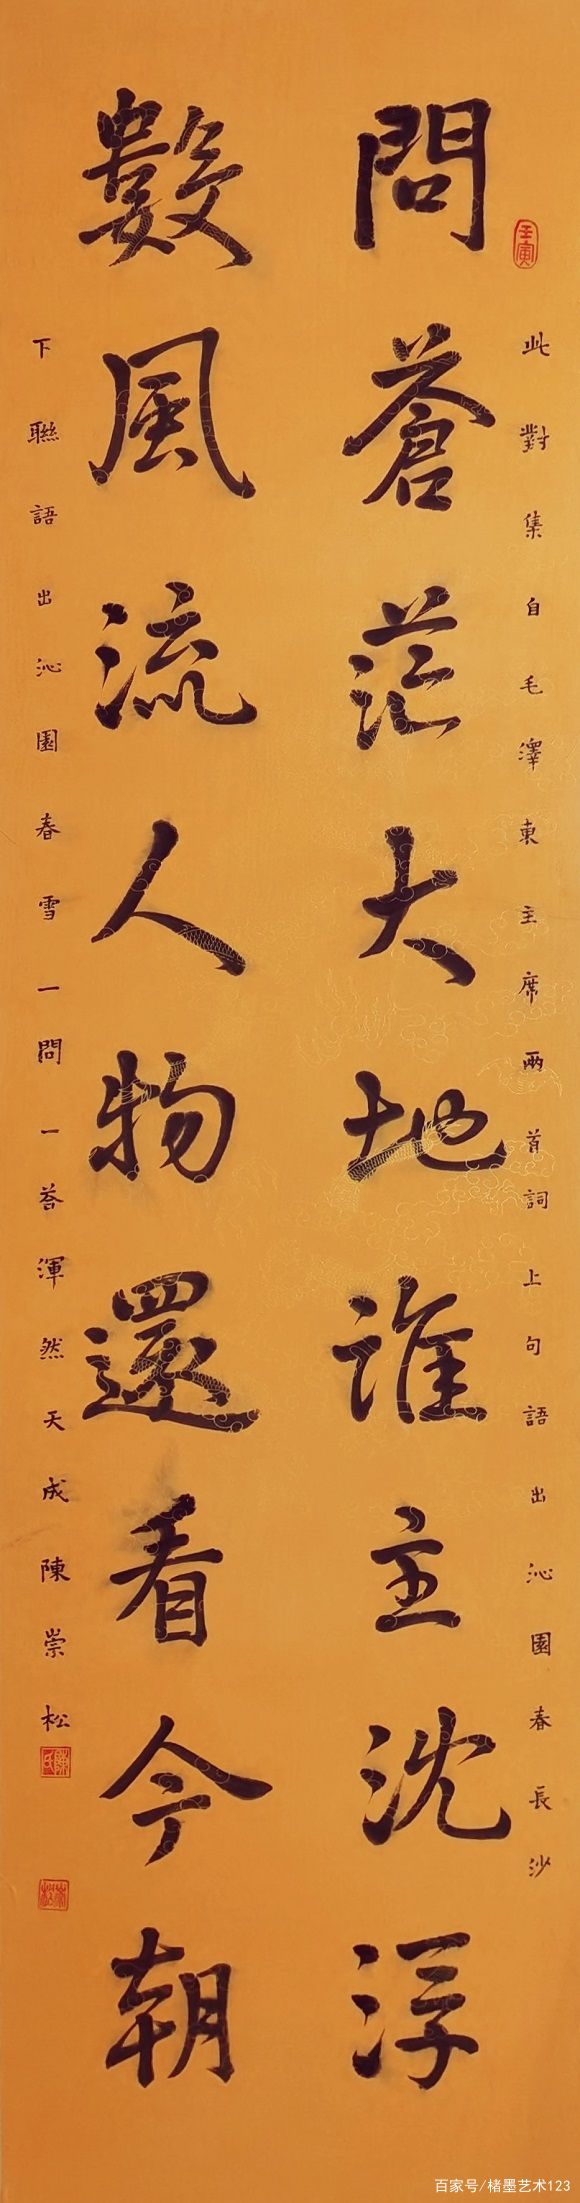 問蒼茫大地誰主沈浮
數風流人物還看今朝
壬寅
此對集自毛澤東主席兩首詞上句語出沁園春長沙
下聯語出沁園春雪一問一荅渾然天成陳崇松
陳氏
崇松
百家号/楮墨艺术123